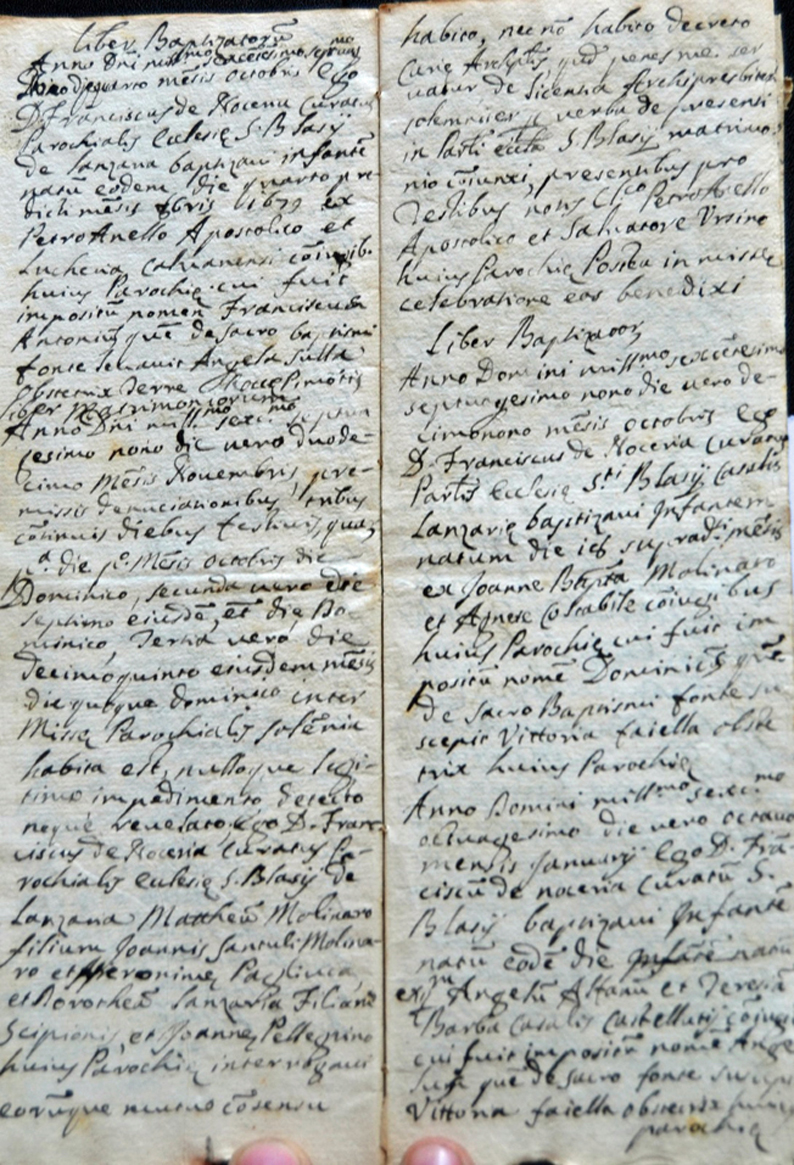 Liber Baptizatorū
Anno Dnī mill.mo sexcētesimo septuag.mo
nono die quarto mēsis octobris Ego
D. Franciscus de Noceria Curatus
Parochialis Eclesię S. Blasÿ
de Lanzana baptizaui infantē
natū eodem die quarto pre-
dicti mēsis 8bris 1679 ex
Petro Anello Apostolico et
cōiugib.
huius Parochię cui fuit
impositū nomen Franciscus
Antonius quē de sacro baptismi
fonte leuauit Angela Sulla
Obstetrix Terre
Liber Matrimoniorum
Anno Dnī mill.mo sexc.mo septua
gesimo nono die uero duode-
cimo mēsis Nouembris, pre-
missis denunciationibus tribus
cōtinuis diebus festiuis, quar
p.a die p.o Mēsis octobris die
Dominico, secunda uero die
septimo eiusdē, et die Do-
minico, Tertia uero die
decimoquinto eiusdem mēsis
die quoque dominico inter
Missę Parochialis solēnia
habita est, nulloque legi-
timo impedimento detecto
neque reuelato, Ego D. Fran-
ciscus de Noceria Curatus Pa-
rochialis Eclesię S. Blasÿ de
Lanzana Mattheū Molinaro
filium Joannis Santuli Molina-
ro et Hieronimę Pagliuca
et Dorotheā Lanzaria Filiam
Scipionis, et Joannę Pellegrino
huius Parochię interrogaui
eorūque mutuo cōsensu
habito, nec nō habito decreto
Curię Archiplis, quod penes me ser
uatur de licentia Archipresbiteri
solemniter p uerba de presenti
in Parli ecclā S. Blasÿ matrimo
nio cōiunxi, presentibus pro
Testibus notis Cl.co Petro Anello
Apostolico et Saluatore Ursino
huius Parochię Postea in missę
celebratione eos benedixi
Liber Baptizatorū
Anno Domini mill.mo sexcētesimo
septuagesimo nono die uero de-
cimonono mēsis octobris ego
D. Franciscus de Noceria Curatus
Parlis Eclesię S.ti Blasÿ Casalis
Lanzarię baptizaui Infantem
natum die 18 supradi mēsis
ex Joanne Btpta Molinaro
et Agnese Costabile cōiugibus
huius Parochię cui fuit im
positū nomē Dominicus quē
de sacro Baptismi fonte su
scepit Vittoria faiella obste
trix huius Parochię
Anno Domini mill.mo sexc.mo
octuagesimo die uero octauo
mensis Januarÿ Ego D. Frā-
ciscū de noceria Curatū S.
Blasÿ baptizaui Infantē
natū eodē die infātē natū
ex Angelū Altanū et Teresia
Barba Casalis Castelluzÿ cōiug
cui fuit impositū nomē Ange
quē de sacro fonte suscepit
Vittoria faiella obstetrix huius
parochię